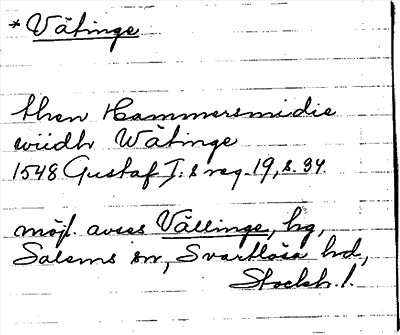 * Våtinge
then Hammersmidie
wiidh Wåtinge
1548 Gustaf I:s reg. 19, s. 34.
möjl. avses Vållinge, hg,
Salems sn, Svartlösa hd,
Stockh. l.